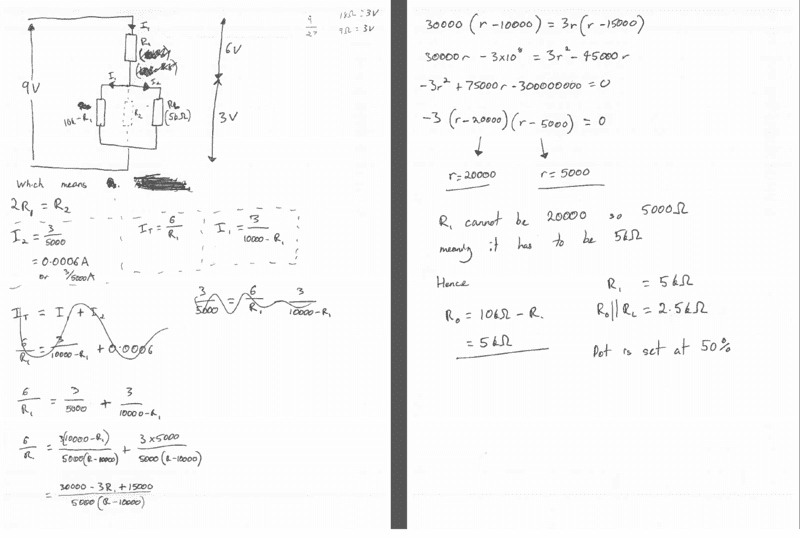 9/27
1kΩ = 3V
9Ω = 3V
I₁
R₁
6V
9V
I₁
I₂
10k - R₁
R₂
(5kΩ)
3V
Which means
2R₁ = R₂
I₂ = 3/5000
= 0.0006A
or 3/5000 A
I_T = 6/R₁
I₁ = 3/(10000 - R₁)
I_T = I₁ + I₂
6/R₁ = 3/(10000 - R₁) + 0.0006
3/5000 = 6/R₁ - 3/(10000 - R₁)
6/R₁ = 3/5000 + 3/(10000 - R₁)
6/R = 3(10000 - R₁)/5000(R - 10000) + 3×5000/5000(R - 10000)
= (30000 - 3R₁ + 15000)/5000(R - 10000)
30000 (r - 10000) = 3r (r - 15000)
30000r - 3×10⁸ = 3r² - 45000r
-3r² + 75000r - 300000000 = 0
-3 (r - 20000)(r - 5000) = 0
r = 20000 r = 5000
R₁ cannot be 20000 so 5000Ω
meaning it has to be 5kΩ
Hence
R₁ = 5kΩ
R₀ = 10kΩ - R₁
R₀||R_L = 2.5kΩ
= 5kΩ
Pot is set at 50%